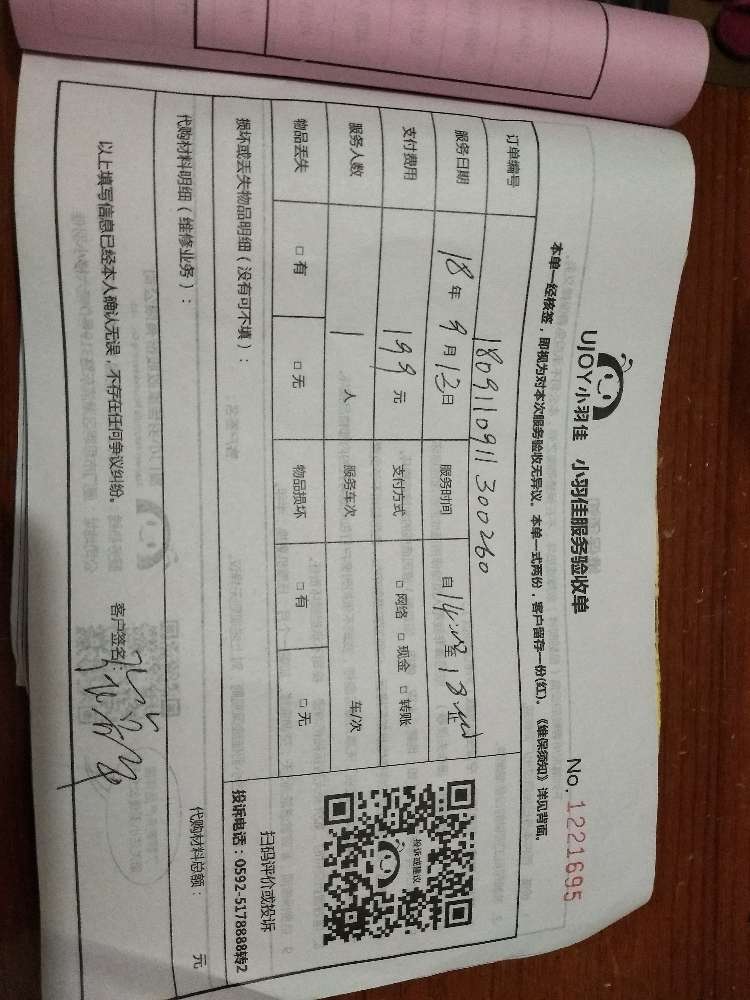 UJOY小羽佳 小羽佳服务验收单
No. 1221695
本单一经核签，即视为对本次服务验收无异议。本单一式两份，客户留存一份(红)。《维保须知》详见背面。
订单编号 180911091130026​0
服务日期 18年9月13日 服务时间 自14:00至18:00止
支付费用 199元 支付方式 □网络 □现金 □转账
服务人数 1人 服务车次 车/次
物品丢失 □有 □无 物品损坏 □有 □无
投诉或建议
扫码评价或投诉
投诉电话：0592-5178888转2
损坏或丢失物品明细（没有可不填）：
代购材料明细（维修业务）：
代购材料总额： 元
以上填写信息已经本人确认无误，不存在任何争议纠纷。 客户签名：